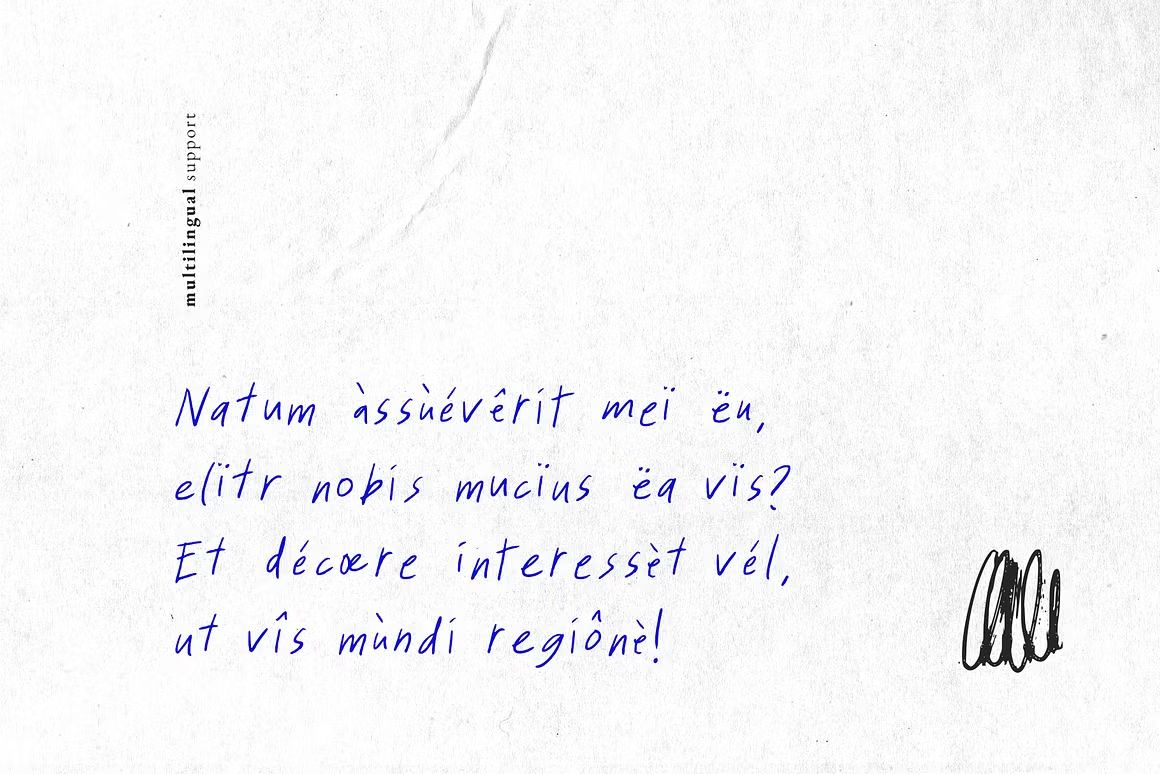 multilingual support
Natum àssùévêrít meï ëu,
elïtr nobís mucïus ëa vïs?
Et décœre ínteressèt vél,
ut vîs mùndí regiônè!